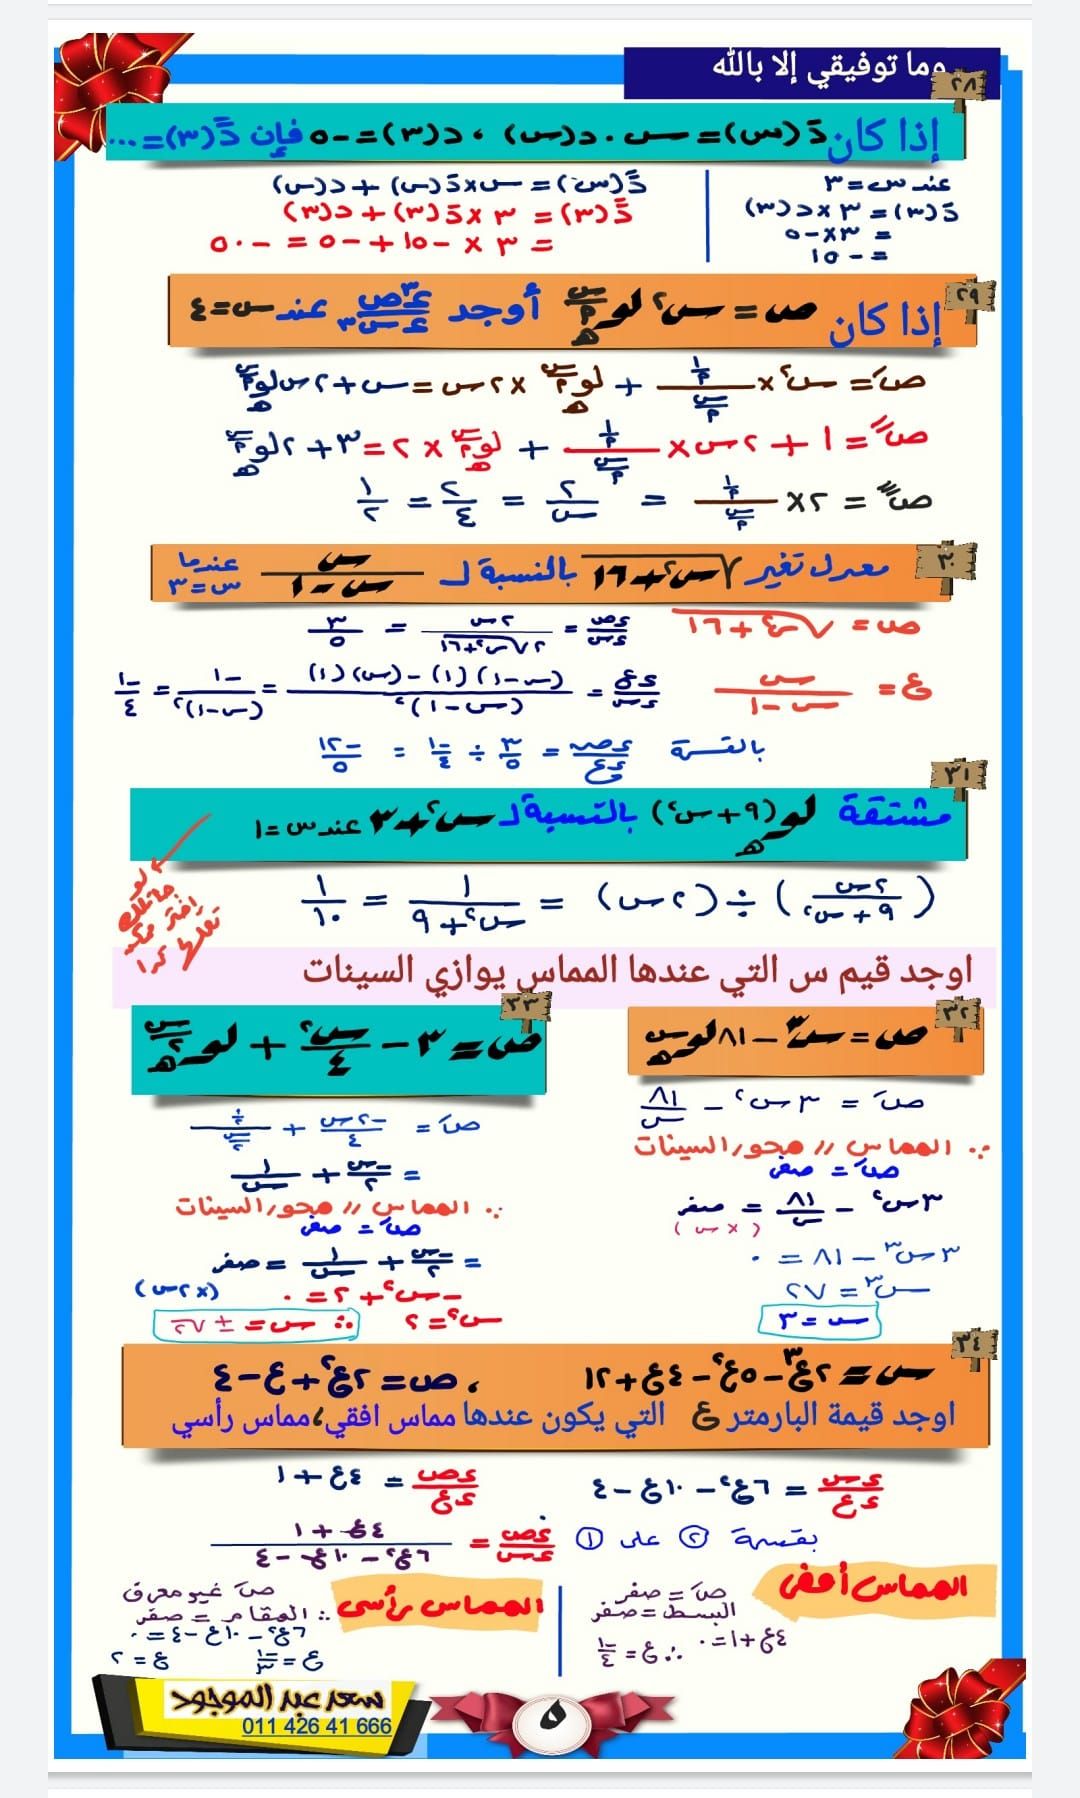 وما توفيقي إلا بالله
٢٨
إذا كان دَ(س) = س . د(س) ، د(٣) = -٥ فإن دً(٣) = ...
عند س = ٣
دَ(٣) = ٣ × د(٣)
= ٣ × -٥
= -١٥
دً(س) = س × دَ(س) + د(س)
دً(٣) = ٣ × دَ(٣) + د(٣)
= ٣ × -١٥ + -٥ = -٥٠
٢٩
إذا كان ص = س٢ لوهـ س/م أوجد ء٣ص/ءس٣ عند س = ٤
صَ = س٢ × (١/م)/(س/م) + لوهـ س/م × ٢س = س + ٢س لوهـ س/م
صً = ١ + ٢س × (١/م)/(س/م) + لوهـ س/م × ٢ = ٣ + ٢ لوهـ س/م
ص = ٢ × (١/م)/(س/م) = ٢/س = ٢/٤ = ١/٢
٣٠
معدل تغير √(س٢ + ١٦) بالنسبة لـ س/(س - ١) عندما س = ٣
ص = √(س٢ + ١٦) ءص/ءس = ٢س/(٢√(س٢ + ١٦)) = ٣/٥
ع = س/(س - ١) ءع/ءس = ((س - ١)(١) - (س)(١))/(س - ١)٢ = -١/(س - ١)٢ = -١/٤
بالقسمة ءص/ءع = ٣/٥ ÷ -١/٤ = -١٢/٥
٣١
مشتقة لوهـ (٩ + س٢) بالنسبة لـ س٢ + ٣ عند س = ١
(٢س/(٩ + س٢)) ÷ (٢س) = ١/(س٢ + ٩) = ١/١٠
اوجد قيم س التي عندها المماس يوازي السينات
٣٢
ص = س٣ - ٨١ لوهـ س
صَ = ٣س٢ - ٨١/س
∵ المماس // محور السينات
صَ = صفر
٣س٢ - ٨١/س = صفر
(× س)
٣س٣ - ٨١ = ٠
س٣ = ٢٧
س = ٣
٣٣
ص = ٣ - س٢/٤ + لوهـ س/٢
صَ = -٢س/٤ + (١/٢)/(س/٢)
= -س/٢ + ١/س
∵ المماس // محور السينات
صَ = صفر
= -س/٢ + ١/س = صفر
(× ٢س)
-س٢ + ٢ = ٠
س٢ = ٢ ∴ س = ± √٢
٣٤
س = ٢ع٣ - ٥ع٢ - ٤ع + ١٢ ، ص = ٢ع٢ + ع - ٤
اوجد قيمة البارمتر ع التي يكون عندها مماس افقي، مماس رأسي
ءس/ءع = ٦ع٢ - ١٠ع - ٤ ءص/ءع = ٤ع + ١
بقسمة ② على ① ءص/ءس = (٤ع + ١)/(٦ع٢ - ١٠ع - ٤)
المماس أفقى
صَ = صفر
البسط = صفر
٤ع + ١ = ٠ ∴ ع = -١/٤
المماس رأسى
صَ غير معرف
∴ المقام = صفر
٦ع٢ - ١٠ع - ٤ = ٠
ع = -١/٣ ع = ٢
سعد عبد الموجود
011 426 41 666
٥